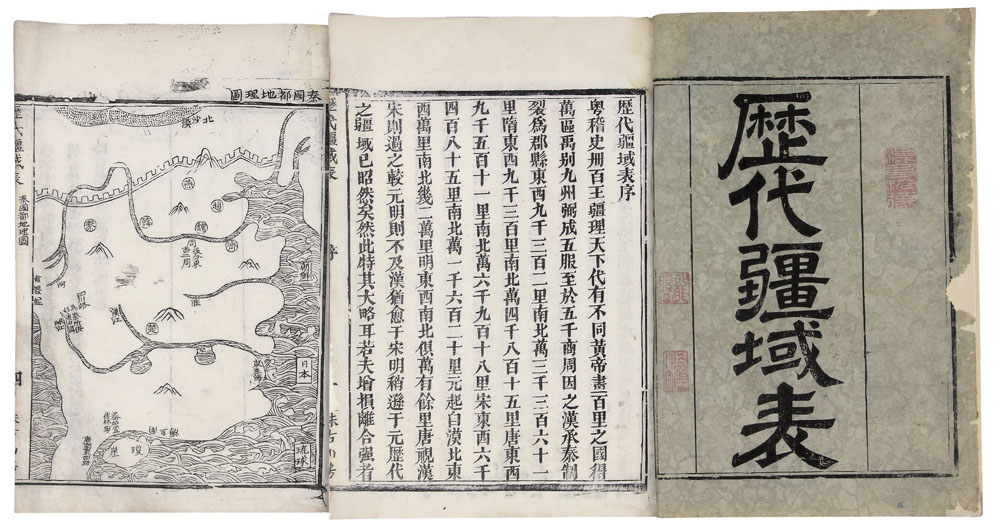 歷代疆域表
歷代疆域表序
粵稽史冊百王疆理天下代有不同黃帝畫百里之國得
萬區禹别九州弼成五服至於五千商周因之漢承秦制
裂爲郡縣東西九千三百二里南北萬三千三百六十一
里隋東西九千三百里南北萬四千八百十五里唐東西
九千五百十一里南北萬六千九百十八里宋東西六千
四百八十五里南北萬一千六百二十里元起白漠北東
西萬里南北幾二萬里明東西南北俱萬有餘里唐視漢
宋則過之較元明則不及漢猶愈于宋明稍遜于元歷代
之疆域已昭然矣然此特其大略耳若夫增損離合强者
歷代疆域表
序
一
秦國都地理圖
北沙漠
朝鮮
日本
琉球
燕
趙
魏
韓
秦
楚
淮
河
歷代疆域表
秦國都地理圖
四